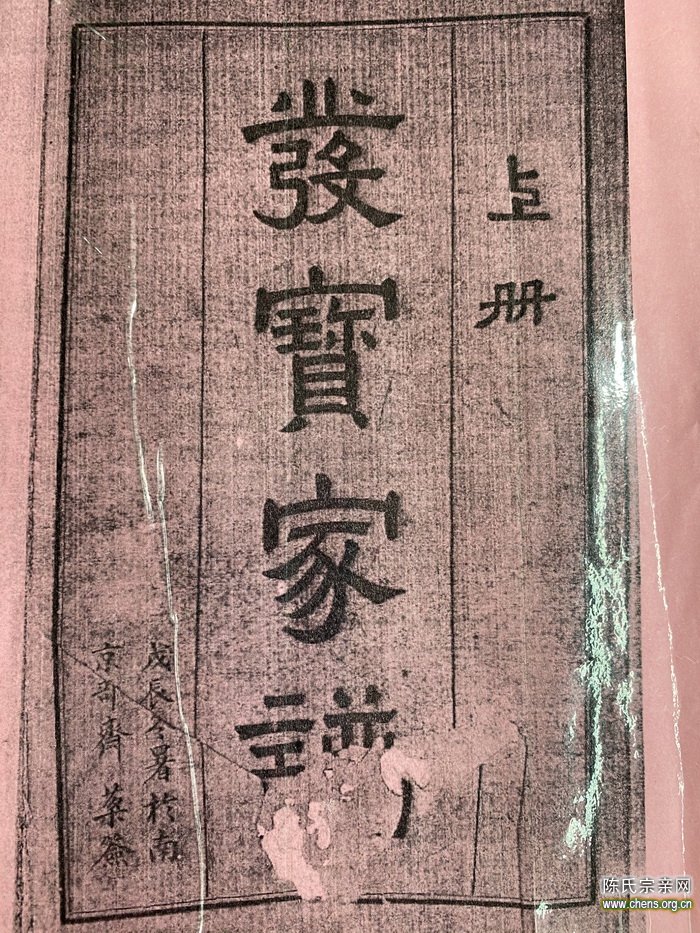 上册
發寶家譜
戊辰冬暑於南
京部齊 葉蒼
陈氏宗亲网
www.chens.org.cn